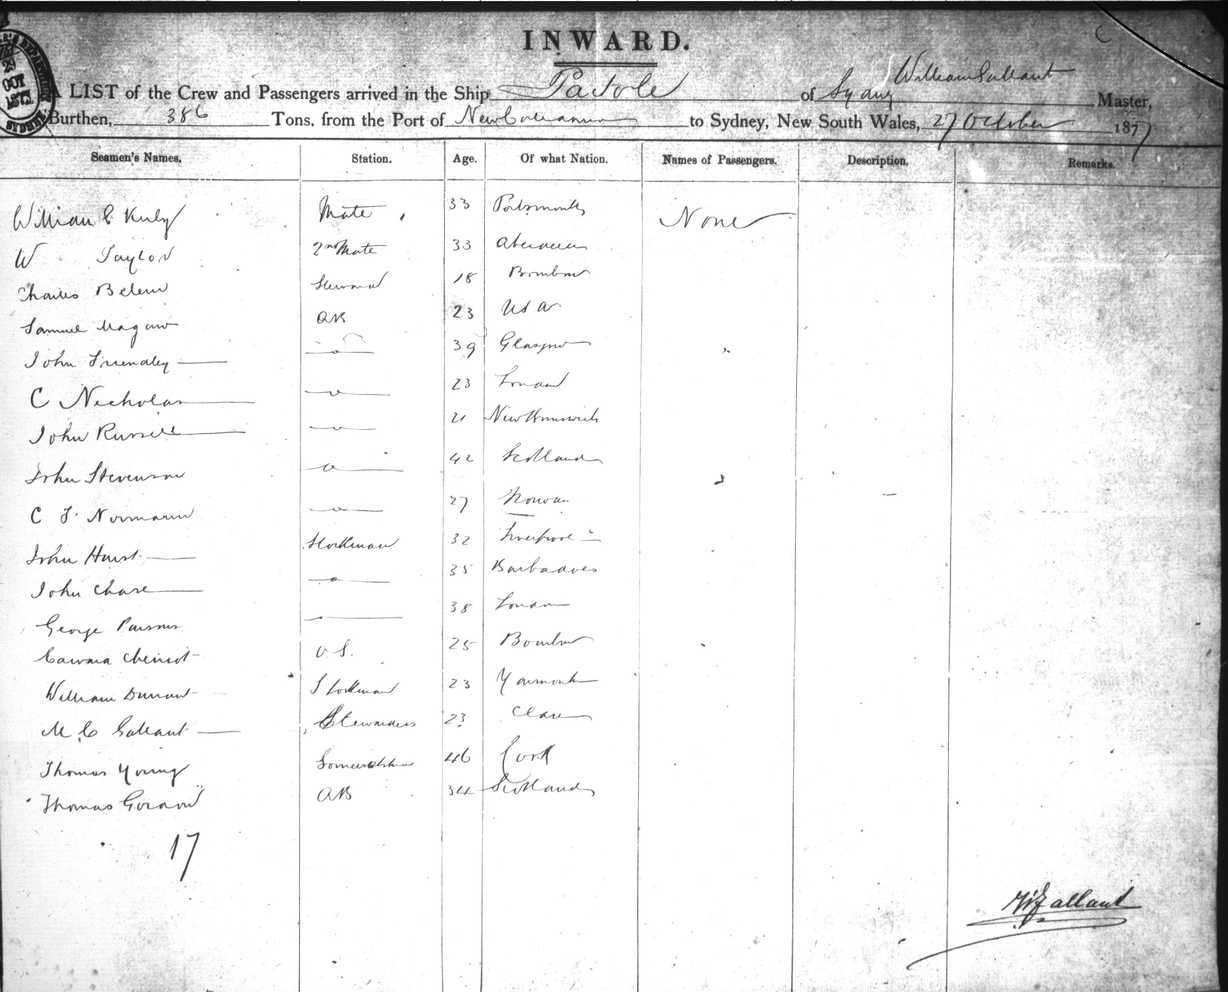 INWARD.
William Gallant
A LIST of the Crew and Passengers arrived in the Ship Pactole of Sydney Master,
Burthen, 386 Tons, from the Port of New Caledonia to Sydney, New South Wales, 27 October 1877
Seamen's Names. Station. Age. Of what Nation. Names of Passengers. Description. Remarks.
William C Mate 33 Portsmouth None
W Taylor 2nd Mate 33 Aberdeen
Charles Steward 18 Bombay
Samuel AB 23 USA
John Friendley —o— 39 Glasgow
C Nicholas —o— 23 London
John Russell —o— 21 New Brunswick
John Stevenson —o— 42 Scotland
C F Normann —o— 27
John Hurst Stockman 32 Liverpool
John Chase —o— 35 Barbadoes
George Parsons 38 London
O S. 25 Bombay
William Durrant Stockman 23 Yarmouth
M C Gallant Stewardess 23 Clare
Thomas Young 46 Cork
Thomas Gordon AB 34 Scotland
17
W Gallant